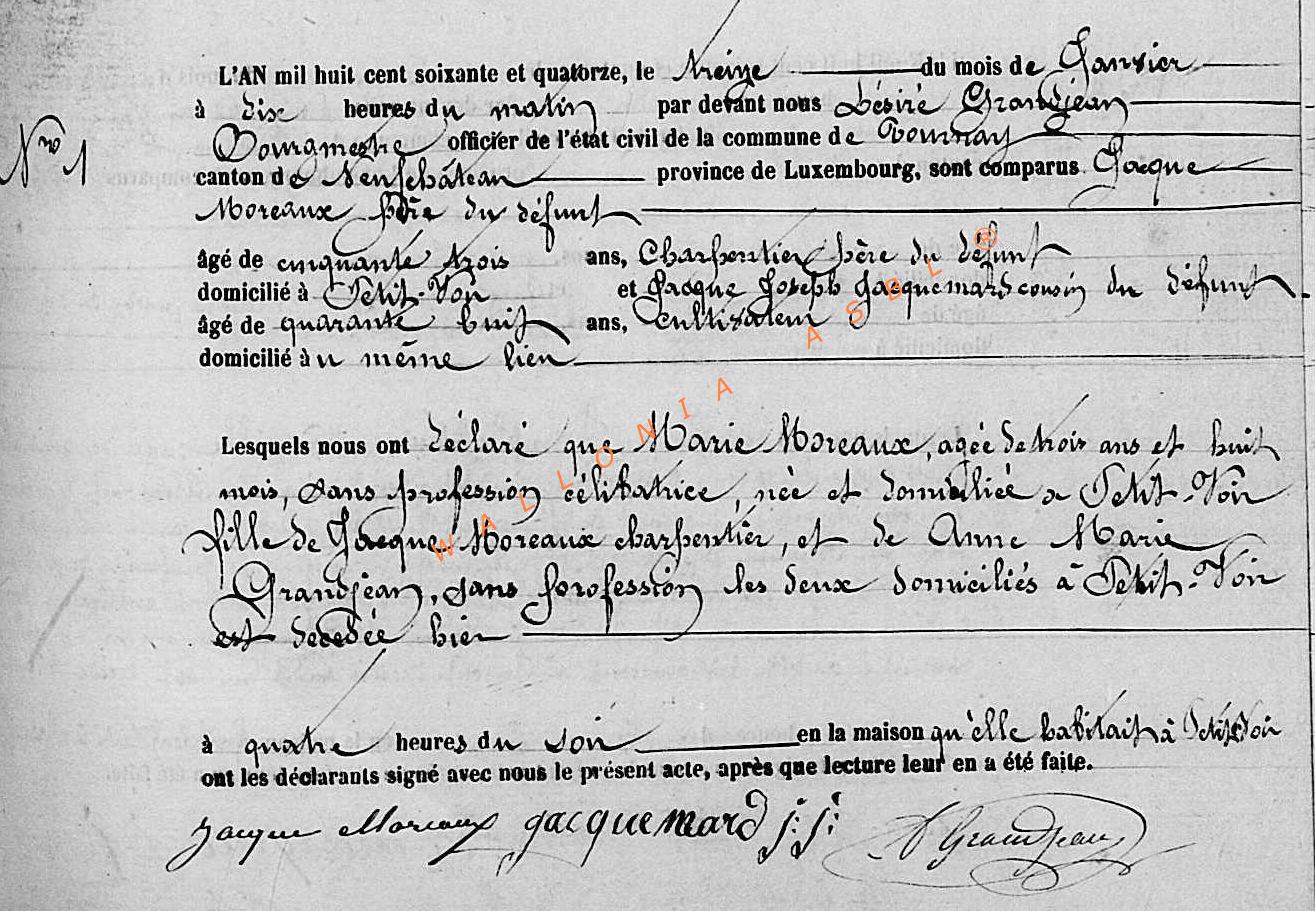 L'AN mil huit cent soixante et quatorze, le treize du mois de Janvier
à dix heures du matin par devant nous Désiré Grandjean
Bourgmestre officier de l'état civil de la commune de Tournay
Nro 1
canton de Neufchâteau province de Luxembourg, sont comparus Jacque
Moreaux père du défunt
âgé de cinquante trois ans, Charpentier père du défunt
domicilié à Petit-Voir et Jacque Joseph Jacquemard cousin du défunt
âgé de quarante huit ans, cultivateur
domicilié àu même lieu
Lesquels nous ont déclaré que Marie Moreaux, agée de trois ans et huit
mois, sans profession célibatrice, née et domiciliée a Petit-Voir
fille de Jacque Moreaux charpentier, et de Anne Marie
Grandjean, sans profession les deux domiciliés à Petit-Voir
est decedée hier
à quatre heures du soir en la maison qu'elle habitait à Petit-Voir
ont les déclarants signé avec nous le présent acte, après que lecture leur en a été faite.
Jacque Moreaux Jacquemard j: j: D Grandjean
WALLONIA ASBL ®